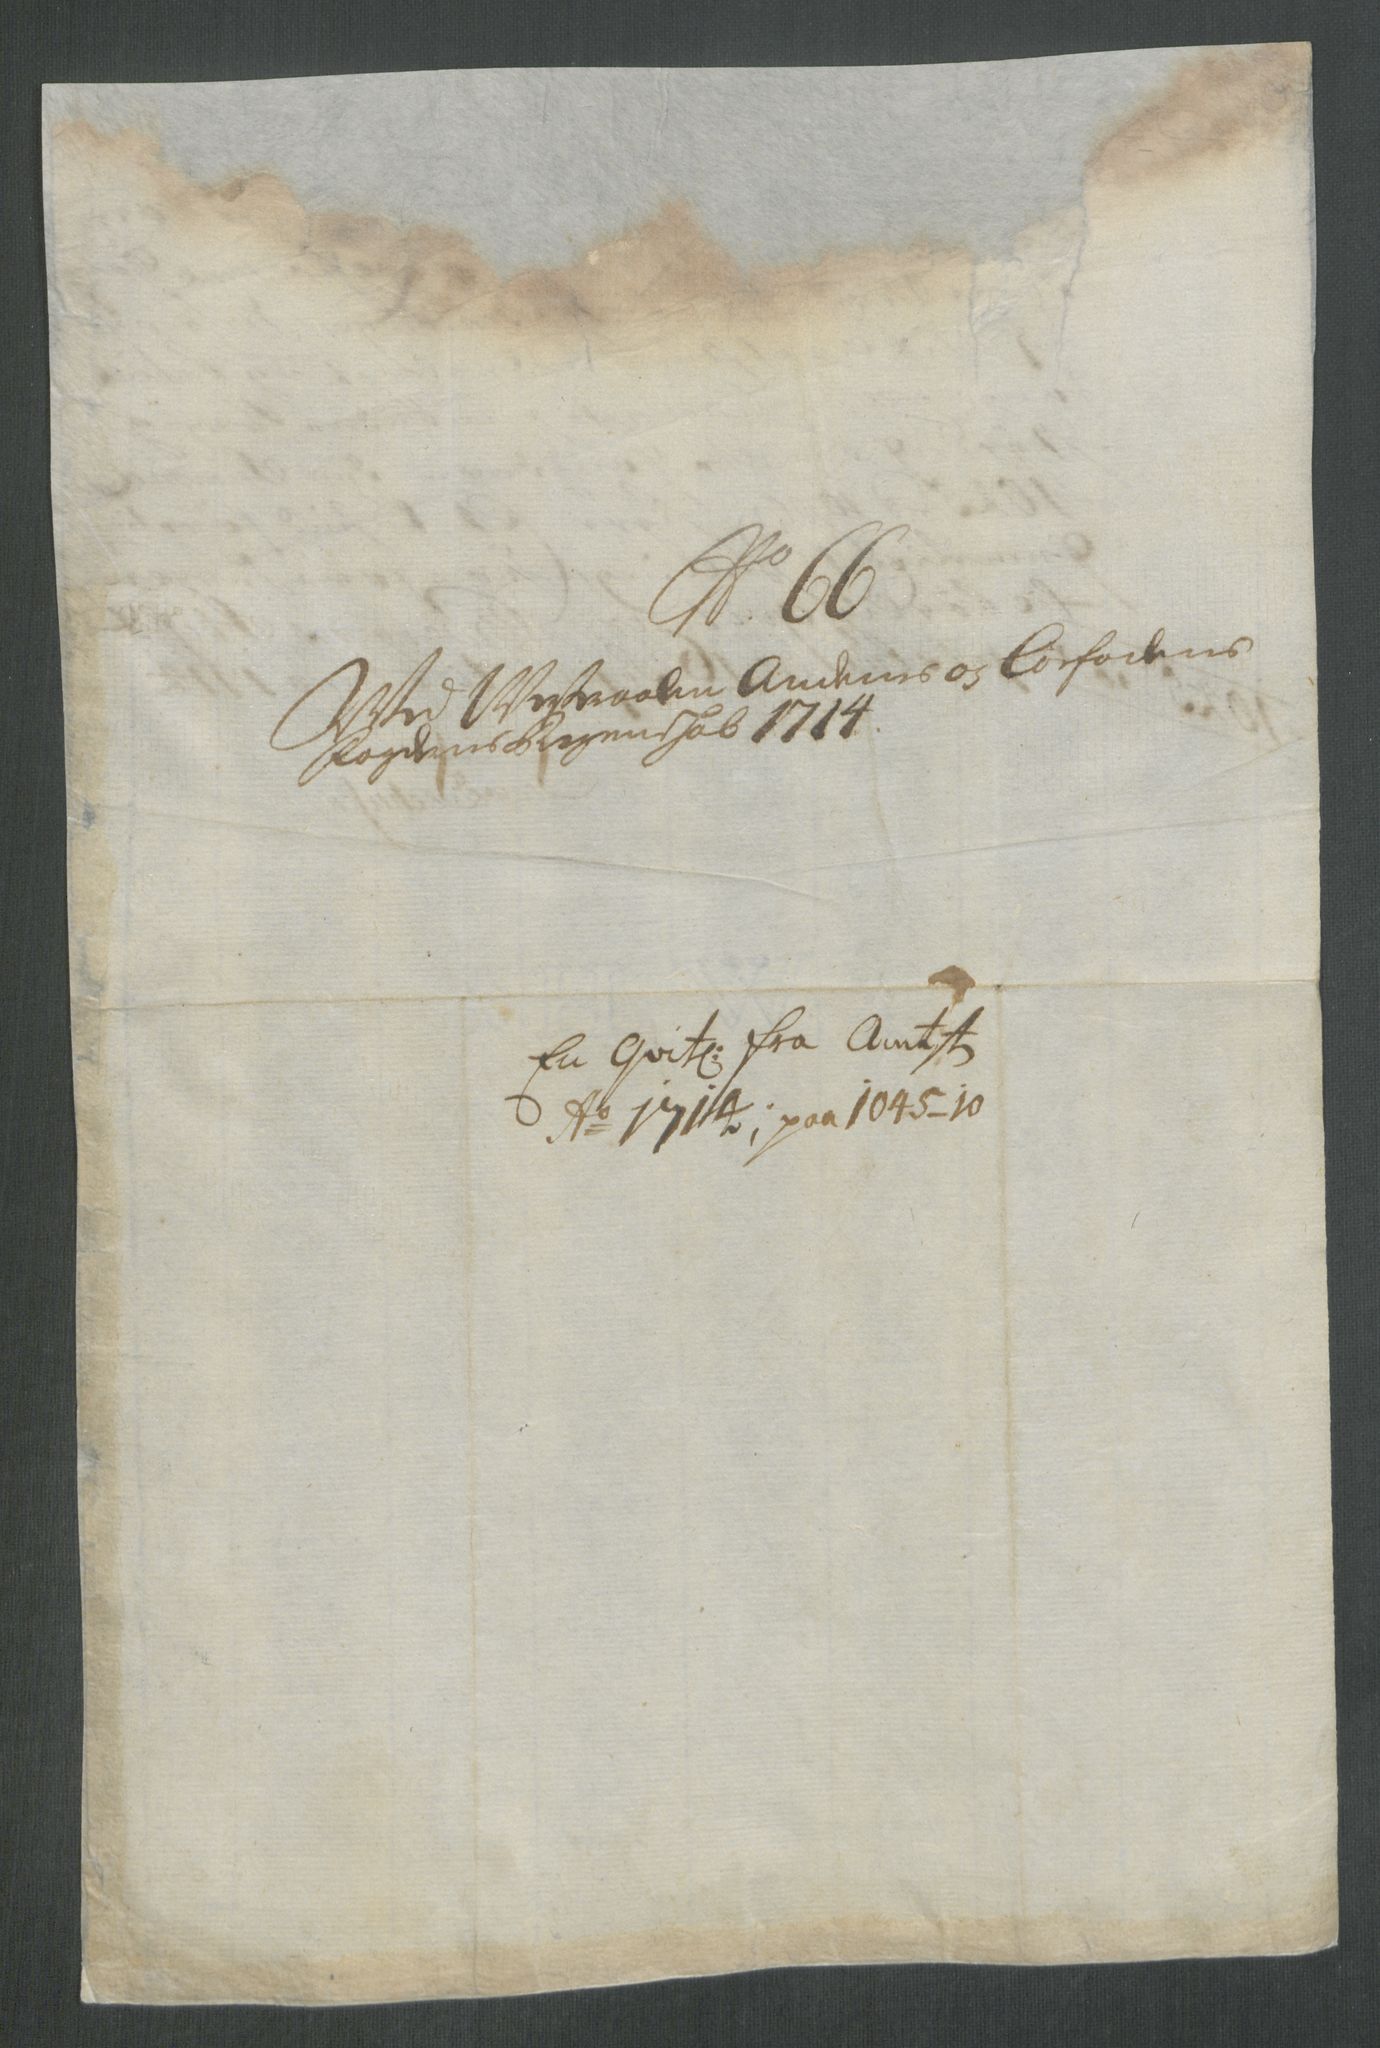 No. 66
Ved Westraalen Andenes og Loefodens
Fogderis Regenschab 1714.
En Qvit: fra Amtst
Ao 1714; paa 1045-10